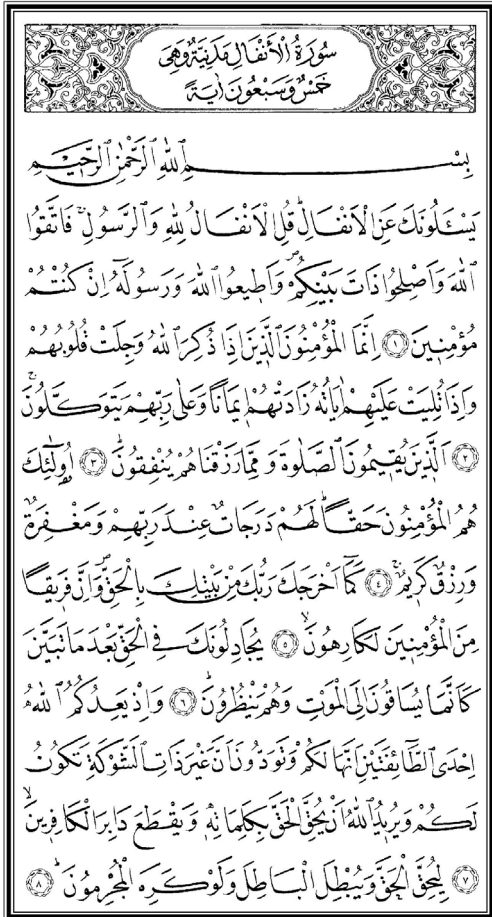 سُورَةُ الْأَنْفَالِ مَدَنِيَّةٌ وَهِيَ
خَمْسٌ وَسَبْعُونَ اٰيَةً
بِسْمِ اللهِ الرَّحْمٰنِ الرَّحِيمِ
يَسْـَٔلُونَكَ عَنِ الْاَنْفَالِۜ قُلِ الْاَنْفَالُ لِلّٰهِ وَالرَّسُولِۚ فَاتَّقُوا
اللهَ وَاَصْلِحُوا ذَاتَ بَيْنِكُمْۖ وَاَطِيعُوا اللهَ وَرَسُولَهُٓ اِنْ كُنْتُمْ
مُؤْمِنِينَ ﴿١﴾ اِنَّمَا الْمُؤْمِنُونَ الَّذِينَ اِذَا ذُكِرَ اللهُ وَجِلَتْ قُلُوبُهُمْ
وَاِذَا تُلِيَتْ عَلَيْهِمْ اٰيَاتُهُ زَادَتْهُمْ اِيمَانًا وَعَلٰى رَبِّهِمْ يَتَوَكَّلُونَۚ
﴿٢﴾ اَلَّذِينَ يُقِيمُونَ الصَّلٰوةَ وَمِمَّا رَزَقْنَاهُمْ يُنْفِقُونَۜ ﴿٣﴾ اُولٰٓئِكَ
هُمُ الْمُؤْمِنُونَ حَقًّاۜ لَهُمْ دَرَجَاتٌ عِنْدَ رَبِّهِمْ وَمَغْفِرَةٌ
وَرِزْقٌ كَرِيمٌۚ ﴿٤﴾ كَمَٓا اَخْرَجَكَ رَبُّكَ مِنْ بَيْتِكَ بِالْحَقِّۖ وَاِنَّ فَرِيقًا
مِنَ الْمُؤْمِنِينَ لَكَارِهُونَۙ ﴿٥﴾ يُجَادِلُونَكَ فِي الْحَقِّ بَعْدَ مَا تَبَيَّنَ
كَاَنَّمَا يُسَاقُونَ اِلَى الْمَوْتِ وَهُمْ يَنْظُرُونَۜ ﴿٦﴾ وَاِذْ يَعِدُكُمُ اللهُ
اِحْدَى الطَّٓائِفَتَيْنِ اَنَّهَا لَكُمْ وَتَوَدُّونَ اَنَّ غَيْرَ ذَاتِ الشَّوْكَةِ تَكُونُ
لَكُمْ وَيُرِيدُ اللهُ اَنْ يُحِقَّ الْحَقَّ بِكَلِمَاتِهِ وَيَقْطَعَ دَابِرَ الْكَافِرِينَۙ
﴿٧﴾ لِيُحِقَّ الْحَقَّ وَيُبْطِلَ الْبَاطِلَ وَلَوْ كَرِهَ الْمُجْرِمُونَۚ ﴿٨﴾